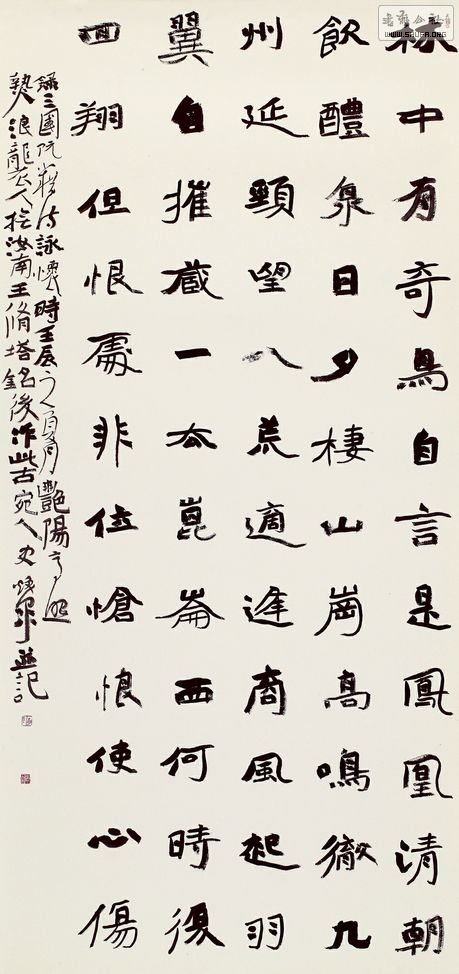 林中有奇鳥自言是鳳凰清朝
飲醴泉日夕棲山崗高鳴徹九
州延頸望八荒適逢商風起羽
翼自摧藏一去崑崙西何時復
回翔但恨處非位愴悢使心傷
錄三國阮籍詩詠懷時壬辰之夏月艷陽高照
南王脩塔銘後作此古宛人史並記
WWW.SHUFA.ORG